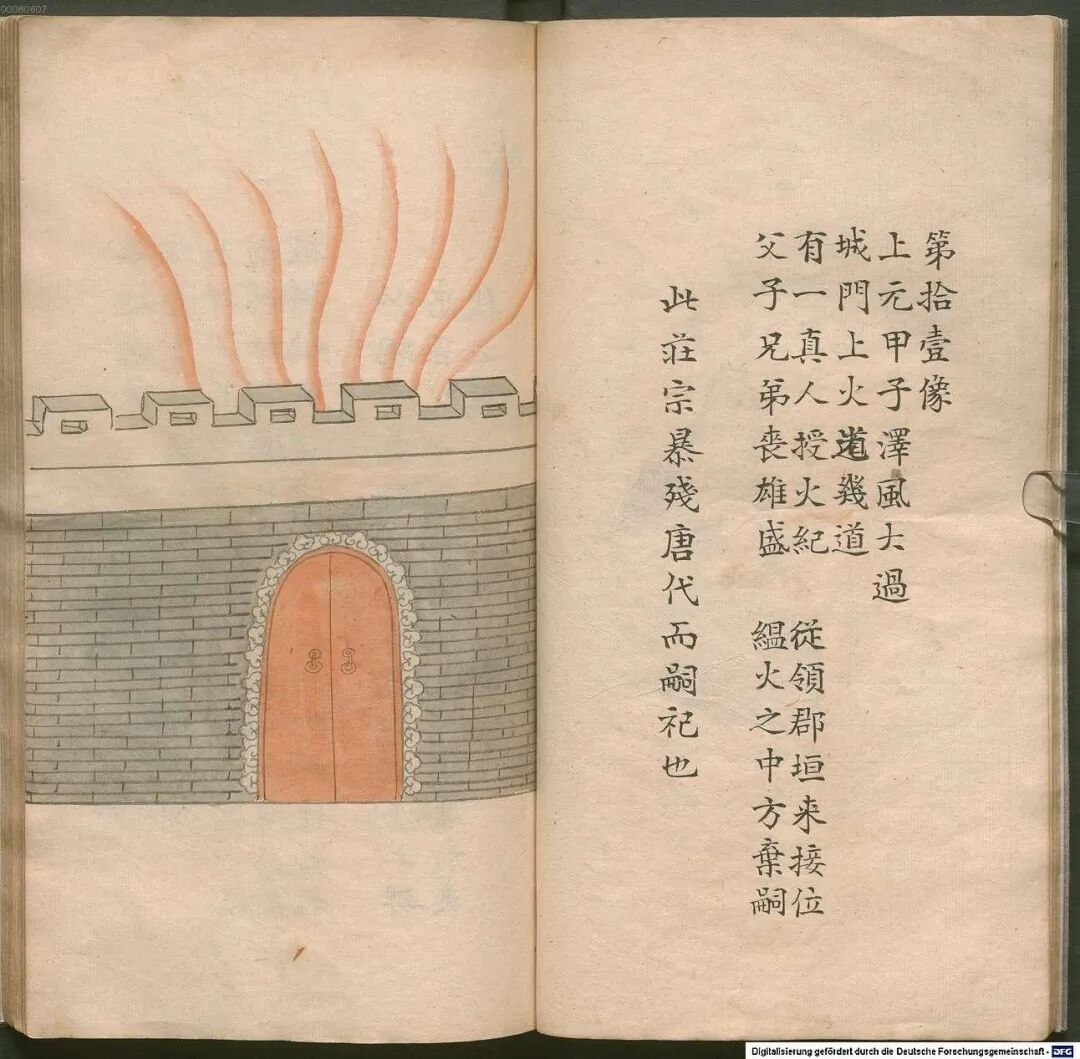 00080607
第拾壹像
上元甲子澤風大過
城門上火道幾道
有一真人授火紀 從領郡垣来接位
父子兄弟喪雄盛 緼火之中方棄嗣
此莊宗暴殘唐代而嗣祀也
Digitalisierung gefördert durch die Deutsche Forschungsgemeinschaft - DFG